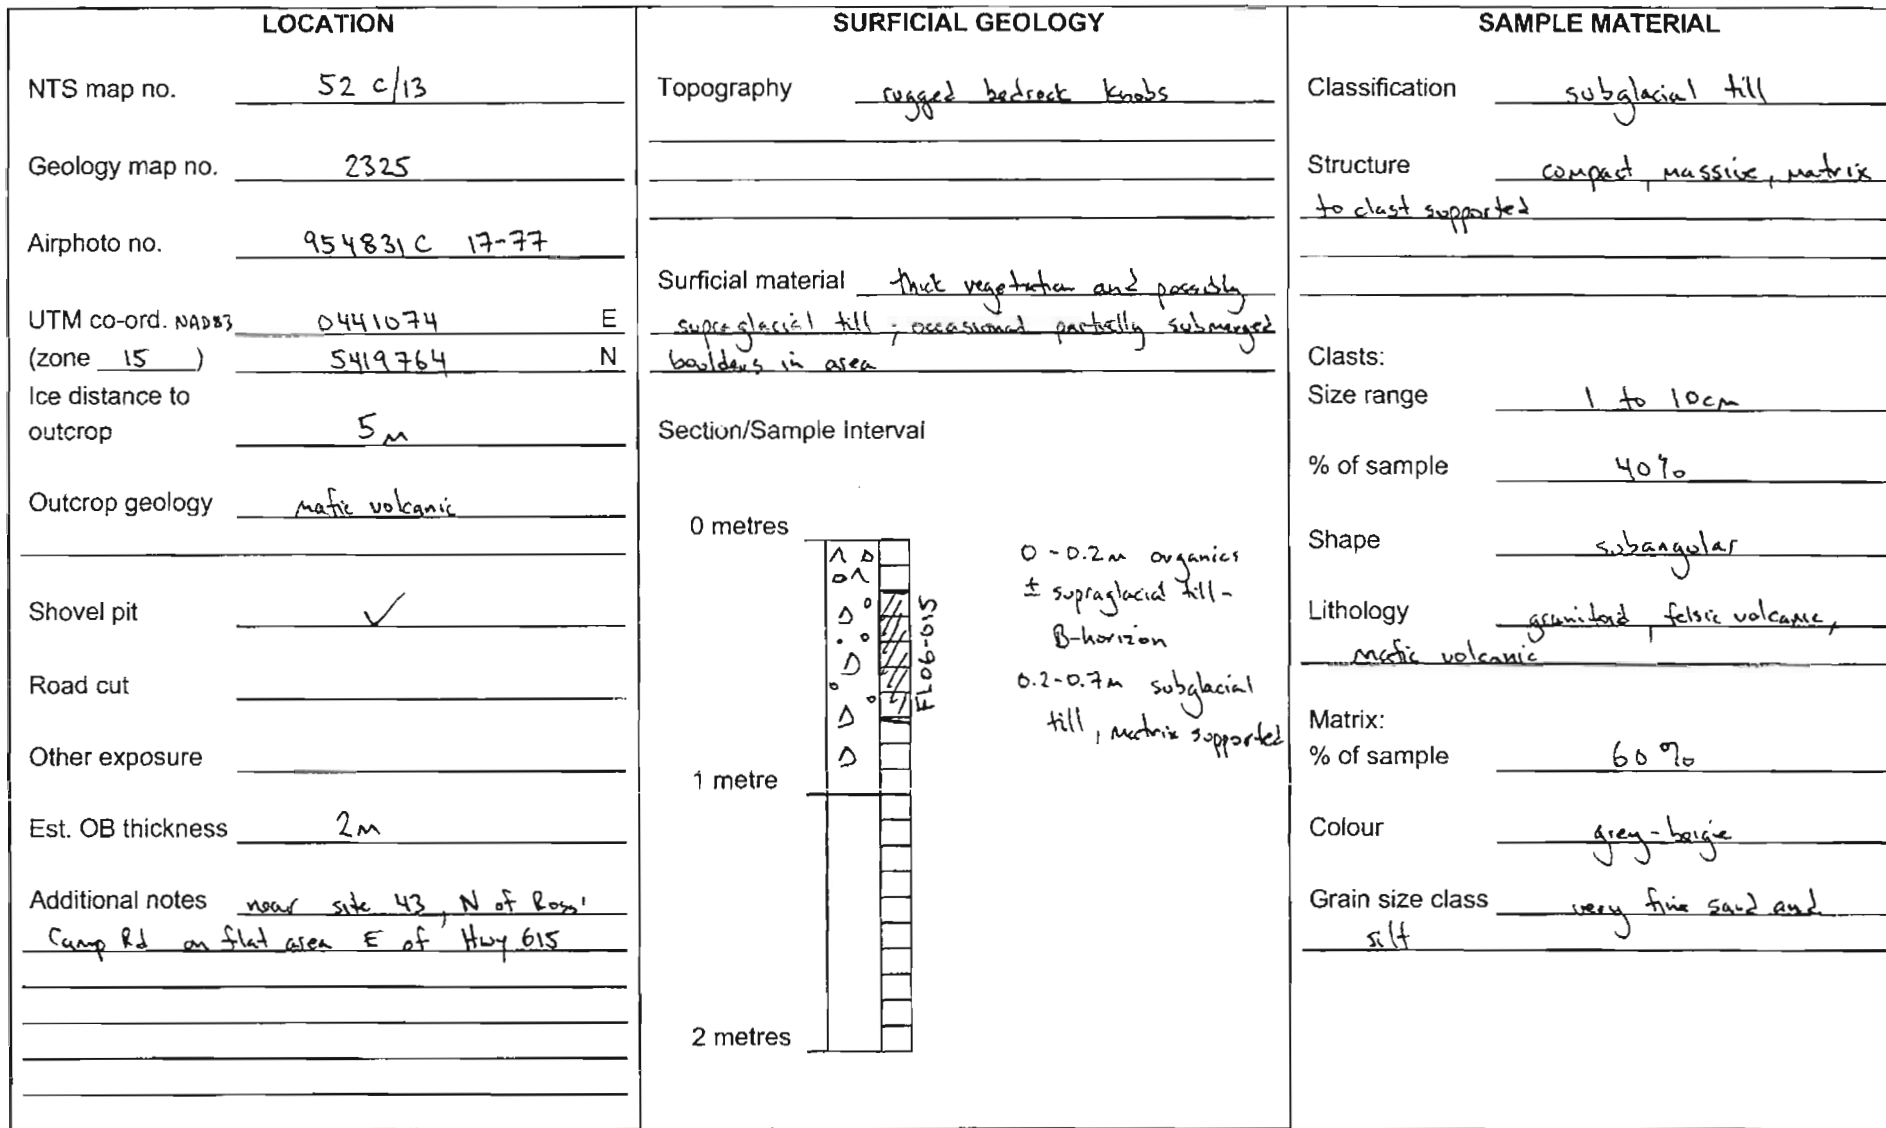 LOCATION
NTS map no. 52 C/13
Geology map no. 2325
Airphoto no. 954831C 17-77
UTM co-ord. NAD83 0441074 E
(zone 15) 5419764 N
Ice distance to
outcrop 5m
Outcrop geology mafic volcanic
Shovel pit ✓
Road cut
Other exposure
Est. OB thickness 2m
Additional notes near site 43, N of
Camp Rd on flat area E of Hwy 615
SURFICIAL GEOLOGY
Topography rugged bedrock knobs
Surficial material thick vegetation and possibly
supraglacial till; occasional partially submerged
boulders in area
Section/Sample Interval
0 metres
0-0.2m organics
± supraglacial till-
B-horizon
0.2-0.7m subglacial
till, matrix supported
FL06-015
1 metre
2 metres
SAMPLE MATERIAL
Classification subglacial till
Structure compact, massive, matrix
to clast supported
Clasts:
Size range 1 to 10cm
% of sample 40%
Shape subangular
Lithology granitoid, felsic volcanic,
mafic volcanic
Matrix:
% of sample 60%
Colour grey-beige
Grain size class very fine sand and
silt